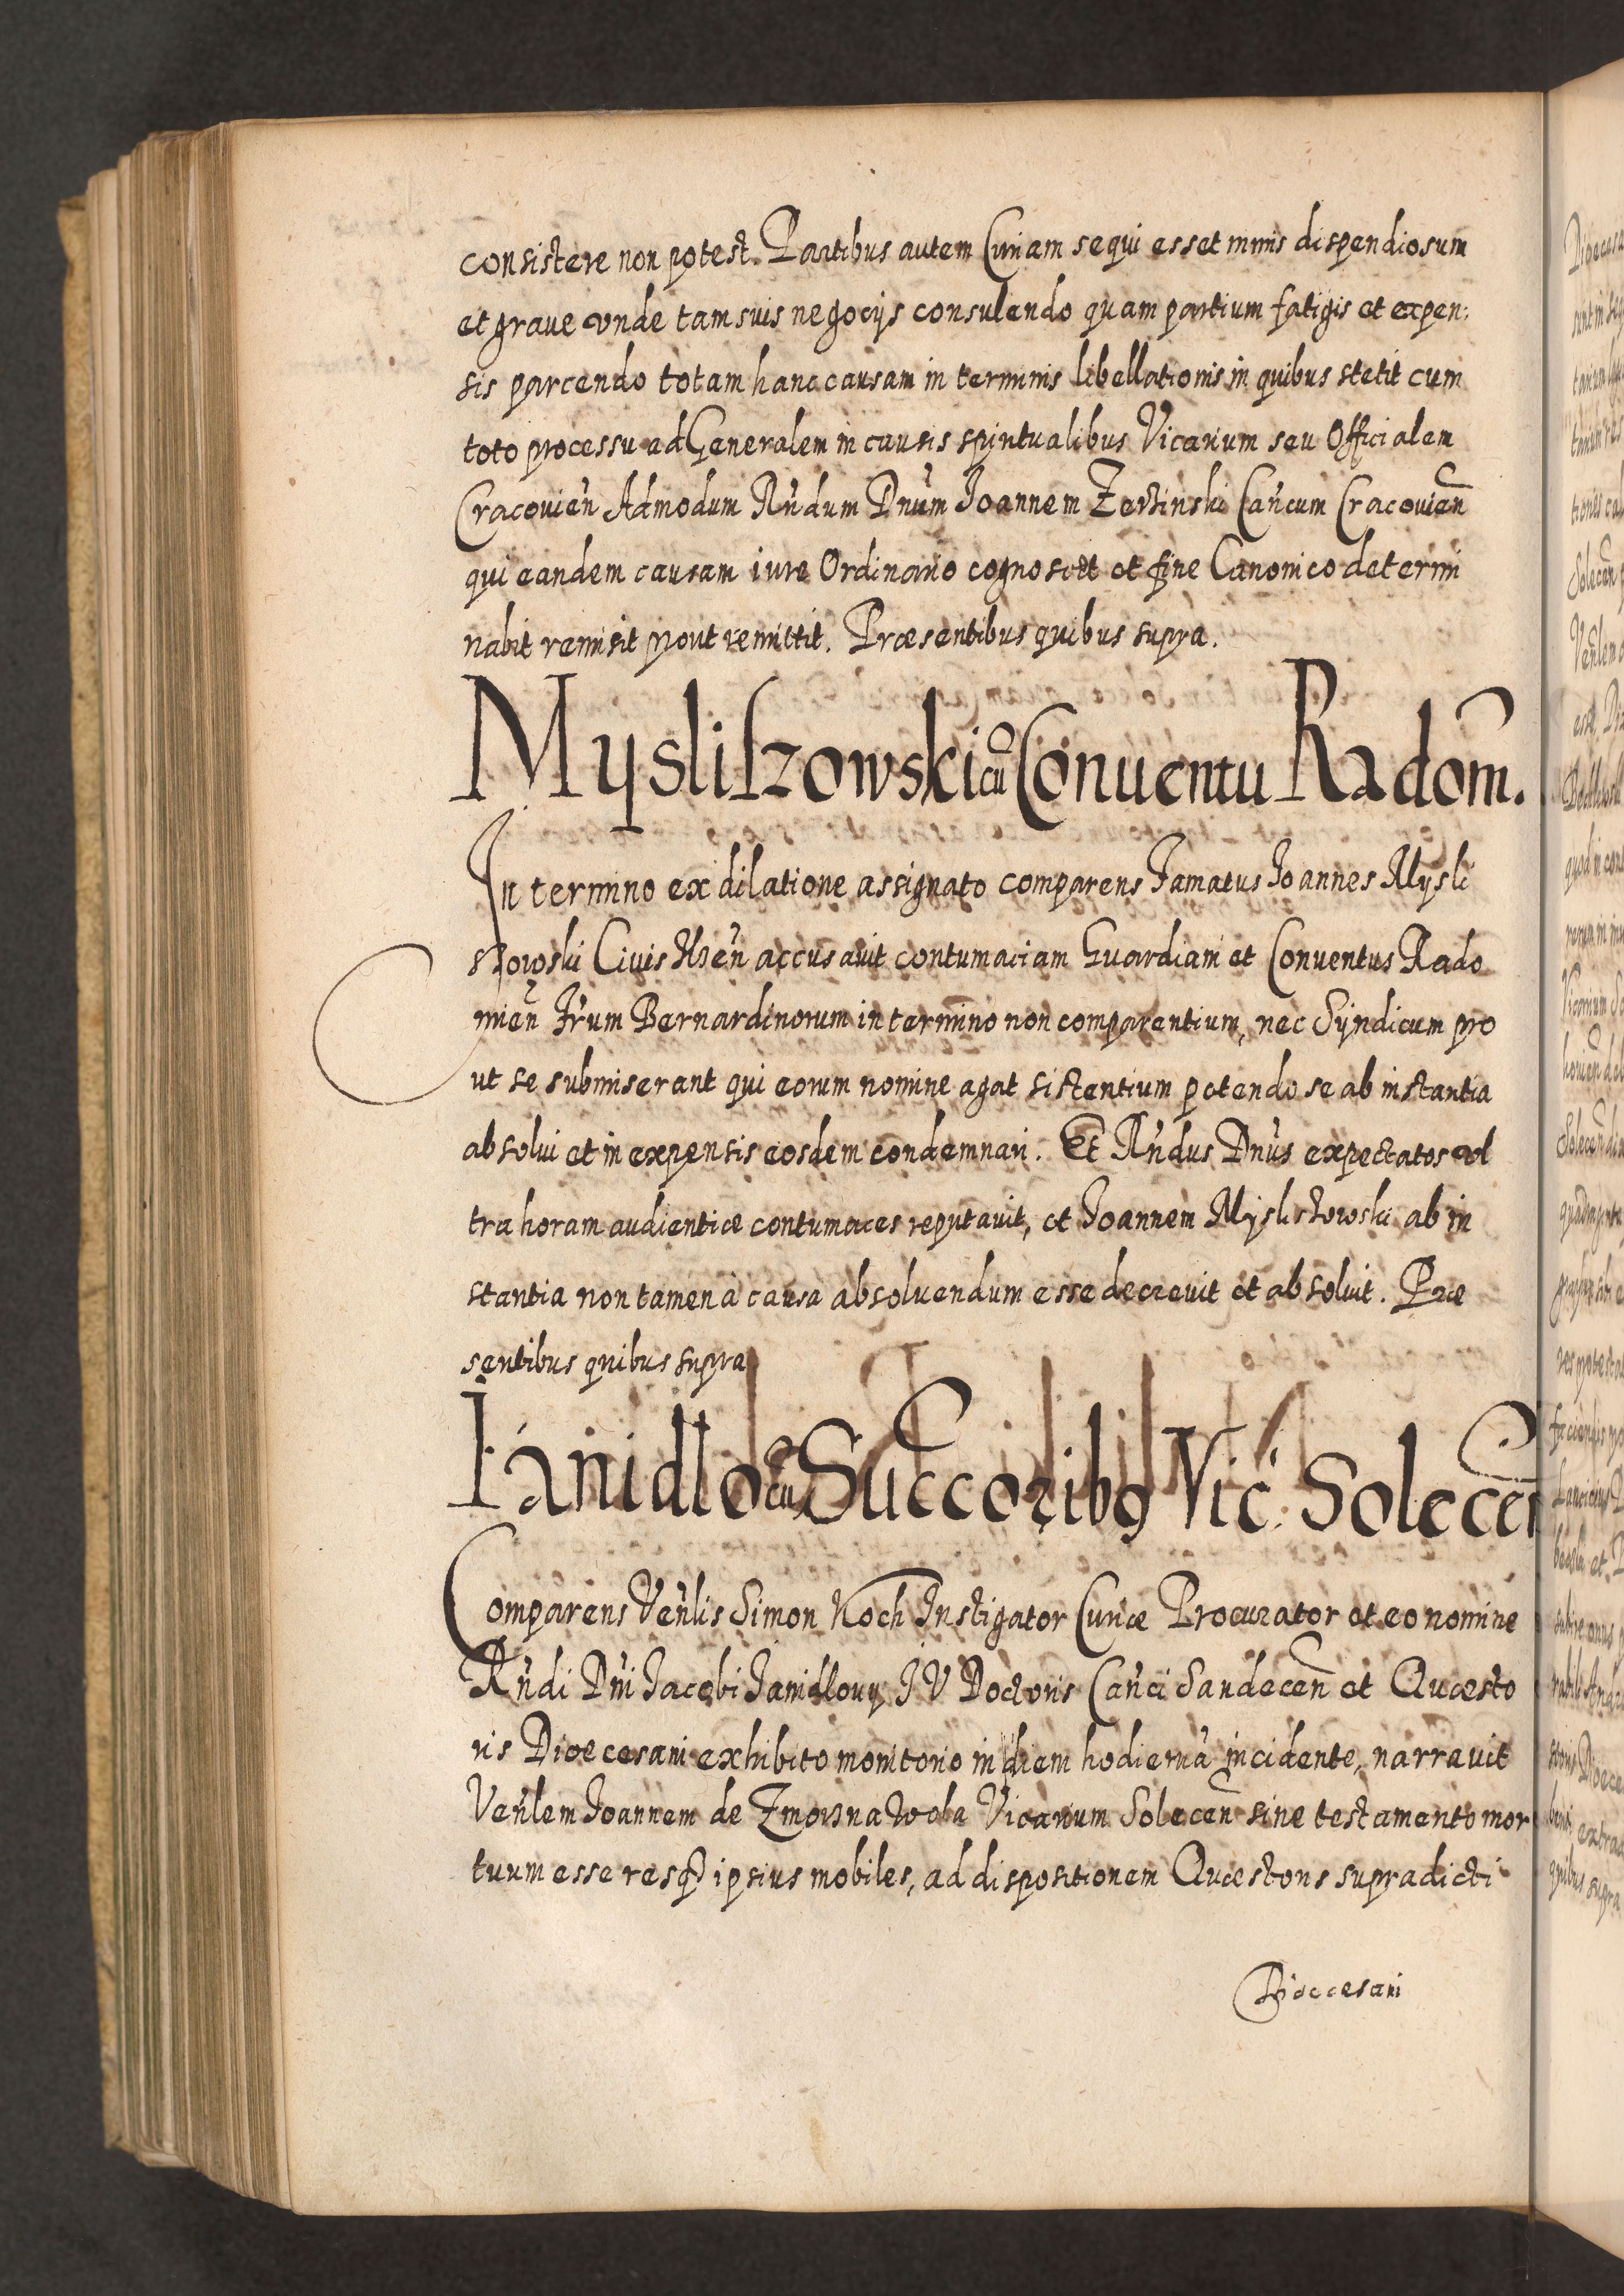 consistere non potest. Partibus autem Curiam sequi esset nimis dispendiosum
et graue vnde tam suis negocijs consulendo quam partium fatigis et expen:
sis parcendo totam hanc causam in terminis libellationis in quibus stetit cum
toto processu ad Generalem in causis spiritualibus Vicarium seu Officialem
Cracovien̄ Admodum Rn̄dum Dn̄um Joannem Can̄cum Cracovien̄
qui eandem causam iure Ordinario cognoscet et fine Canonico determi
nabit remisit prout remittit. Præsentibus quibus supra.
Mysliszowski cū Conuentu Radom̄.
In termino ex dilatione assignato comparens Famatus Joannes Mysli
szowski Civis accusavit contumaciam Guardiani et Conventus Rado
mien̄ Fr̄um Bernardinorum in termino non comparentium, nec Syndicum pro
ut se submiserant qui eorum nomine agat sistentium petendo se ab instantia
absolvi et in expensis eosdem condemnari. Et Rn̄dus Dn̄us expectatos vl
tra horam audientiæ contumaces reputavit, et Joannem Mysliszowski ab in
stantia non tamen à causa absoluendum esse decrevit et absolvit. Præ
sentibus quibus supra
Ianidlo cū Succoribꝰ Vic: Solecen
Comparens Ven̄lis Simon Koch Instigator Curiæ Procurator et eo nomine
Rn̄di Dn̄i Jacobi Janidlouy J V Doctoris Can̄ci Sandecen̄ et Quæsto
ris Dioecesani exhibito monitorio in diem hodiernā incidente, narravit
Ven̄lem Joannem de Vicarium Solecen̄ sine testamento mor
tuum esse resq̄ ipsius mobiles, ad dispositionem Quæstoris supradicti
Dioecesani